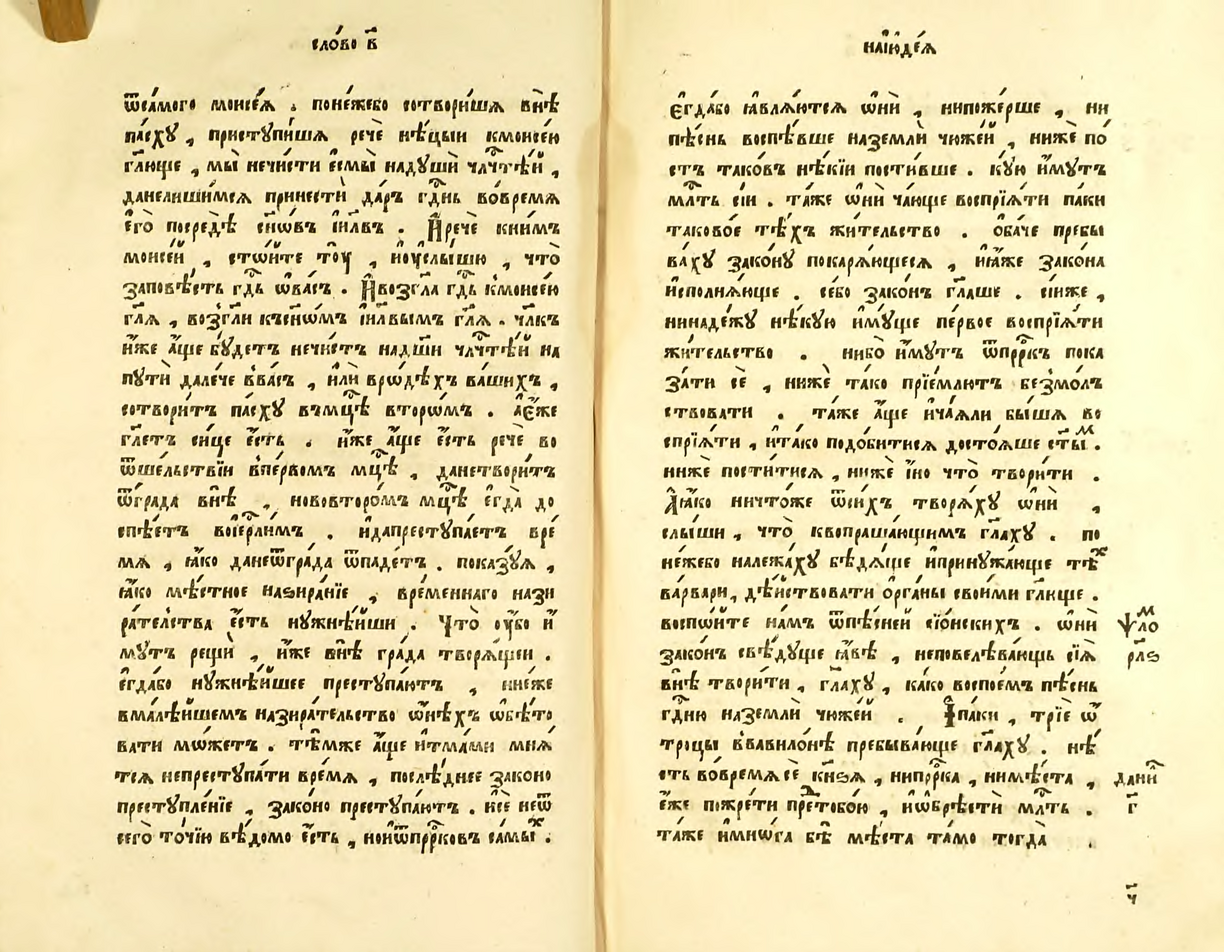 сло́во в҃
ѿса́мого моисе́ѧ . поне́жебо сотвори́шѧ внѣ̀
па́сху , приступи́шѧ речѐ нѣ́цыи кмоисе́ю
гл҃юще , мы̀ нечи́сти є҆смы̀ надꙋшѝ чл҃чтѣ́й ,
данелиши́мсѧ принестѝ да́ръ гдⷭ҇нь во́времѧ
є҆го̀ посредѣ̀ сн҃ѡвъ і҆и҃лвъ . И҆речѐ кни́мъ
моисе́й , сто́йте тоу̀ , и҆оу҆слы́шю , что̀
заповѣ́сть гдⷭ҇ь ѡ҆ва́съ . И҆возгл҃а гдⷭ҇ь кмоисе́ю
гл҃ѧ , возгл҃и къснѡ́мъ і҆и҃лвымъ гл҃ѧ . чл҃къ
и҆́же а҆́ще бꙋ́детъ нечи́стъ надш҃и чл҃чтѣ́й на
пꙋтѝ дале́че вва́съ , и҆лѝ врѡ́дѣхъ ва́шихъ ,
сотвори́тъ па́схꙋ въмцⷭ҇ѣ вторѡ́мъ . а҆є҆́же
гл҃етъ си́це є҆́сть . и҆́же а҆́ще є҆́сть речѐ во
ѿше́льствїи впе́рвомъ мцⷭ҇ѣ , данетвори́тъ
ѿгра́да внѣ̀ , нововторо́мъ мцⷭ҇ѣ є҆гда̀ до
спѣ́етъ воі҆ер҇ли́мъ . и҆дапреступа́етъ вре́
мѧ , ꙗ҆́ко данеѿгра́да ѿпаде́тъ . показꙋ́ѧ ,
ꙗ҆́ко мѣ́стное назира́нїе , вре́меннаго нази
ра́телства є҆́сть нꙋжнѣ́йши . Что̀ оу҆́бо и҆́
мꙋтъ рещѝ , и҆́же внѣ̀ гра́да творѧ́щеи .
є҆гда́бо нꙋжнѣ́йшее преступа́ютъ , кнеже
вмалѣ́йшемъ назира́тельство ѡ҆нѣ́хъ ѡ҆бѣ́то
вати мѡ́жетъ . тѣ́мже а҆́ще и҆тма́ми мнѧ́
тсѧ непреступа́ти вре́мѧ , послѣ́днее зако́но
преступле́нїе , зако́но преступа́ютъ . и҆сѐ неѿ
сего̀ то́чїю вѣ́домо є҆́сть , ноиѿпррⷪ҇ковъ самы́хъ .
наіꙋде́ѧ
Є҆гда́бо ꙗ҆влѧ́ютсѧ ѡ҆нѝ , нипоже́рше , ни
пѣ́снь воспѣ́вше наземлѝ чюже́й , нижѐ по́
стъ тако́въ нѣ́кїи пости́вше . кꙋ́ю и҆́мꙋтъ
млⷭ҇ть сїи . та́же ѡ҆нѝ ча́юще воспрїѧ́ти па́ки
таково́е тѣ́хъ жи́тельство . ѻ҆ба́че пребы
ва́хꙋ зако́нꙋ покарѧ́ющесѧ , и҆ꙗ҆́же зако́на
и҆сполнѧ́юще . се́бо зако́нъ гл҃аше . сїи́же ,
нинаде́жꙋ нѣ́кꙋю и҆мꙋ́ще пе́рвое воспрїѧ́ти
жи́тельство . ни́бо и҆́мꙋтъ ѿпррⷪ҇къ пока
за́ти сѐ , нижѐ та́ко прїе́млютъ безмо́лъ
ствовати . та́же а҆́ще и҆ча́ѧли бы́шѧ во
спрїѧ́ти , и҆та́ко подо́битисѧ достоѧ́ше ст҃ы́м .
нижѐ пости́тисѧ , нижѐ і҆́но что̀ твори́ти .
А҆ꙗ҆́ко ничто́же ѿси́хъ творѧ́хꙋ ѡ҆нѝ ,
слы́ши , что̀ квопраша́ющимъ гл҃ахꙋ . по
не́жебо належа́хꙋ бѣдѧ́ще и҆принꙋжа́юще тѣ́х
ва́рвари, дѣ́йствовати ѻ҆рга́ны свои́ми гл҃юще .
воспо́йте на́мъ ѿпѣ́сней сїо́нскихъ . ѡ҆нѝ
зако́нъ свѣ́дꙋще ꙗ҆́вѣ , неповелѣва́ющь сїѧ̀
внѣ̀ твори́ти , гл҃ахꙋ , ка́ко воспое́мъ пѣ́снь
гдⷭ҇ню наземлѝ чюже́й . І҆па́ки , трїѐ ѻ҆́
троцы вавило́нѣ пребыва́юще гл҃ахꙋ . нѣ́
сть во́времѧ сѐ кнѕ҃ѧ , нипррⷪ҇ка , нимѣ́ста ,
є҆́же пожре́ти пре́тобою , и҆ѡбрѣстѝ млⷭ҇ть .
та́же и҆мнѡ́га бѣ̀ мѣ́ста та́мо тогда̀ .
ѱало́м
рл҃ѕ
дани́л
г҃
ч҃